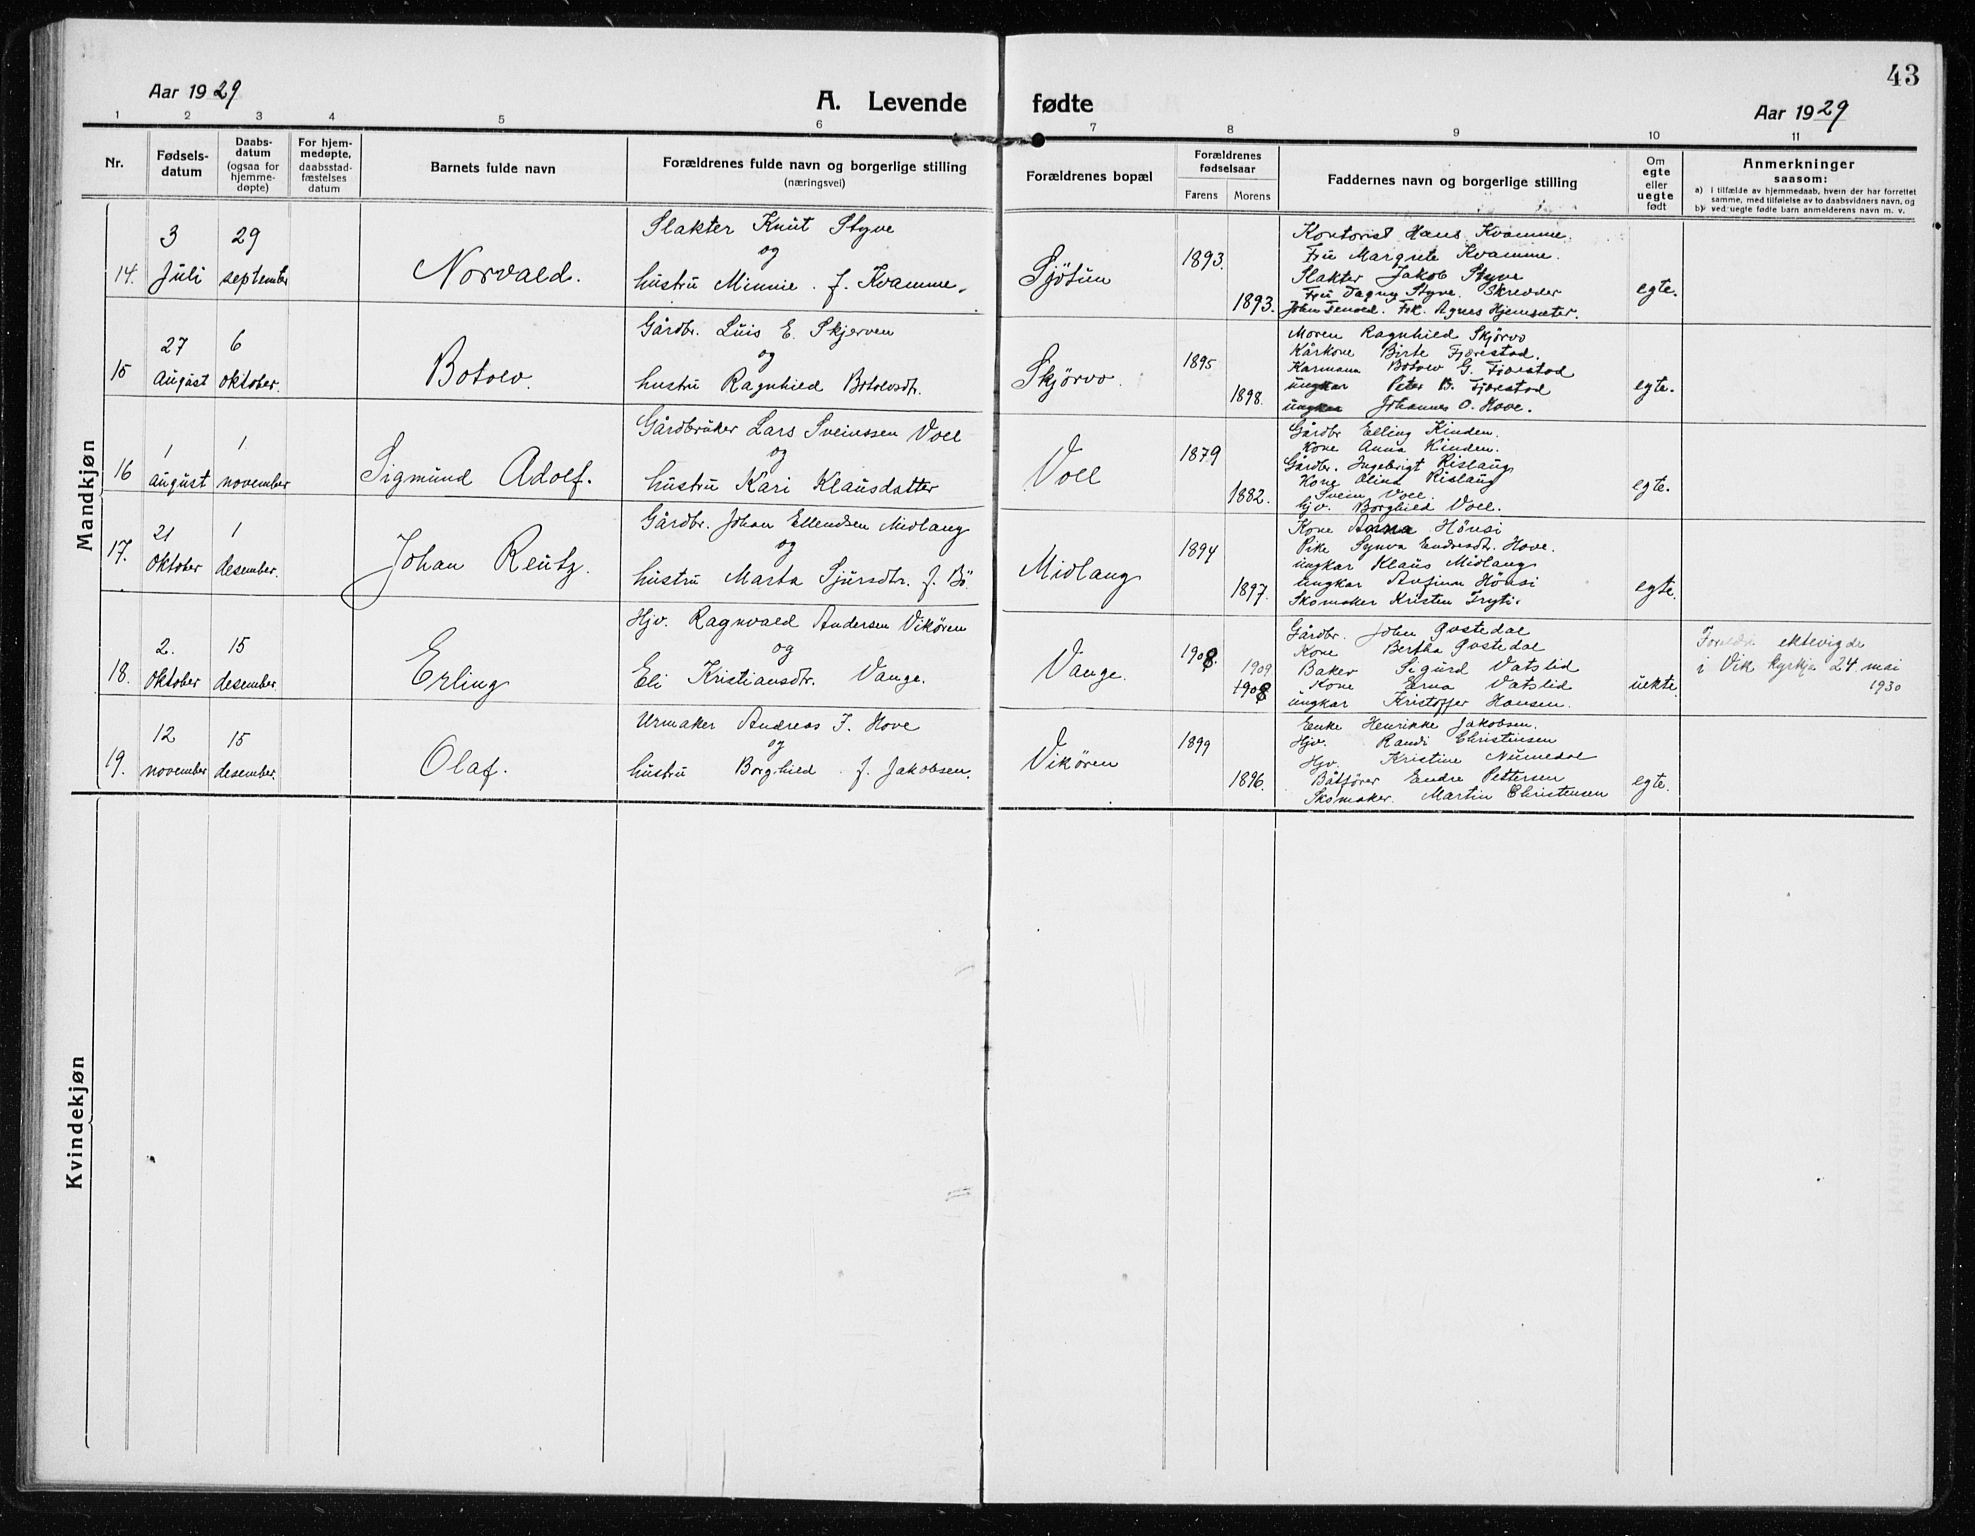 43
Aar 1929
A. Levende fødte
Aar 1929
1 2 3 4 5 6 7 8 9 10 11
Nr.
Fødsels-
datum
Daabs-
datum
(ogsaa for
hjemme-
døpte)
For hjem-
medøpte,
daabsstad-
fæstelses
datum
Barnets fulde navn
Forældrenes fulde navn og borgerlige stilling
(næringsvei)
Forældrenes bopæl
Forældrenes
fødselsaar
Farens Morens
Faddernes navn og borgerlige stilling
Om
egte
eller
uegte
født
Anmerkninger
saasom:
a) I tilfælde av hjemmedaab, hvem der har forrettet
samme, med tilføielse av to daabsvidners navn, og
b) ved uegte fødte barn anmelderens navn m. v.
Mandkjøn
14. 3 Juli
29 september
Norvald.
Slakter Knut Styve
og
hustru Minnie f. Kvamme.
Sjøtun
1893.
1893.
Kontorist Hans Kvamme.
Fru Margrete Kvamme.
Slakter Jakob Styve
Fru Dagny Styve. Skredder
John Fenod. Frk. Agnes Hjemsæter.
egte.
15 27 August
6 oktober.
Botolv.
Gårdbr. Luis E. Skjerven
og
hustru Ragnhild Botolvsdtr.
Skjørvo.
1895
1898.
Moren Ragnhild Skjørvo
Kårkone Birte Fjærestad.
Karmann Botolv G. Fjærestad
ungkar Peter B. Fjærestad
ungkar Johannes O. Hove.
egte.
16 1 august
1. november
Sigmund Adolf.
Gårdbruker Lars Sveinssen Voll
og
hustru Kari Klausdatter
Voll
1879
1882.
Gårdbr Elling Hinden.
Kone Anna Hinden.
Gårdbr. Ingebrigt Rislaug
Kone Olina Rislaug
Svein Voll.
hjv. Borghild Voll.
egte.
17. 21 oktober
1 desember.
Johan Reutz.
Gårdbr. Johan Ellendsen Midlang
og
hustru Marta Sjursdtr. f. Bö
Midlang
1894
1897.
Kone Anna Hönsi
Pike Synva Endresdtr. Hove.
ungkar Klaus Midlang
ungkar Anfinn Hönsi
Skomaker Kristen Tryti.
egte.
18. 2. oktober
15 desember.
Erling
Hjv. Ragnvald Andersen Vikören
og
Eli Kristiansdtr. Vange.
Vange.
1908.
1909
1908
Gårdbr. John Ovstedal
Kone Bertha Ovstedal
Baker Sigurd Vatslid
Kone Erna Vatslid
ungkar Kristoffer Hansen.
uekte.
Foreldr ektevigde
i Vik kyrkja 24 mai
1930
19. 12 november
15 desember.
Olaf.
Urmaker Andreas J. Hove
og
hustru Borghild f. Jakobsen.
Vikören
1899
1896.
Enke Henrikke Jakobsen.
Hjv. Randi Christensen
Hjv. Kristine Numedal
Båtförer Endre Pettersen
Skomaker. Martin Christensen
egte.
Kvindekjøn